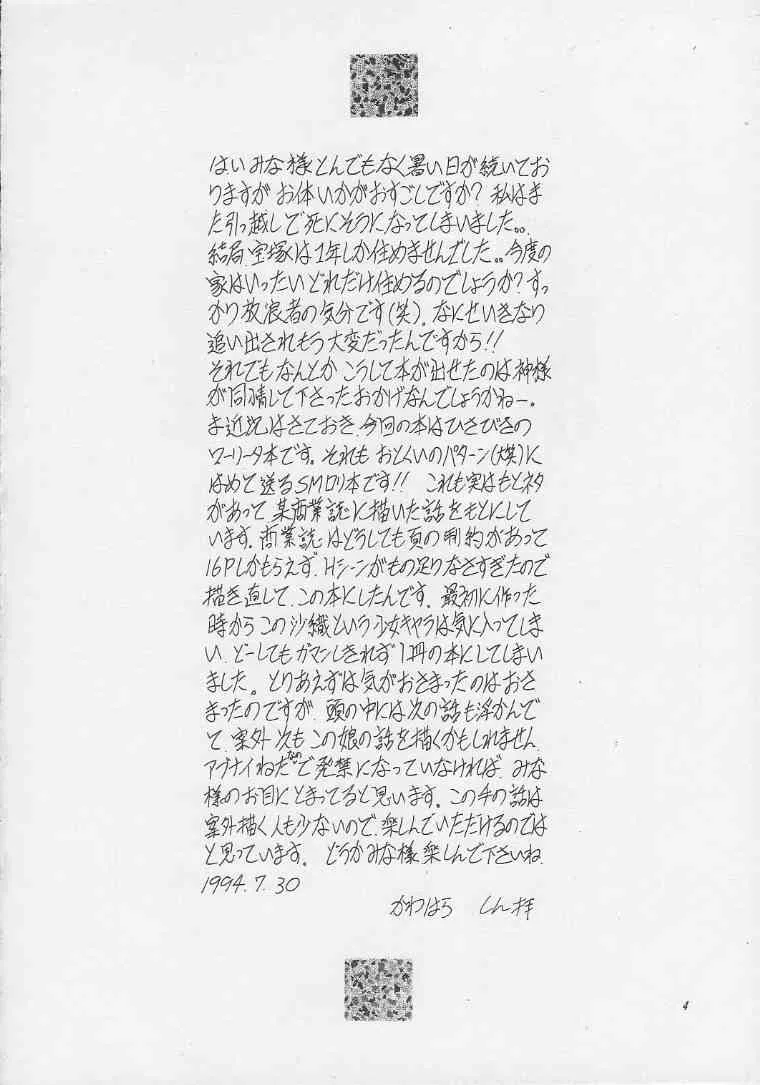 はいみな様とんでもなく暑い日が続いてお
りますがお体いかがおすごしですか?私はま
た引っ越しで死にそうになってしまいました。。
結局、宝塚は1年しか住めませんでした。。今度の
家はいったいどれだけ住めるのでしょうか?すっ
かり放浪者の気分です(笑)。なにせいきなり
追い出されもう大変だったんですから!!
それでもなんとかこうして本が出せたのは神様
が同情して下さったおかげなんでしょうかねー。
ま近況はさておき、今回の本はひさびさの
ローリータ本です。それもおとくいのパターン(大笑)に
はめて送るSMロリ本です!! これも実はもとネタ
があって某商業誌に描いた話をもとにして
います。商業誌はどうしても頁の制約があって
16Pしかもらえず、Hシーンがもの足りなさすぎたので
描き直して、この本にしたんです。最初に作った
時からこの沙織という少女キャラは気に入ってしま
い、どーしてもガマンしきれず1冊の本にしてしまい
ました。とりあえずは気がおさまったのはおさ
まったのですが、頭の中には次の話も浮かんで
て、案外次もこの娘の話を描くかもしれません、
アブナイねたなので発禁になっていなければ、みな
様のお目にとまってると思います。この手の話は
案外描く人も少ないので、楽しんでいただけるのでは
と思っています。どうかみな様楽しんで下さいね、
1994.7.30
かわはら しん拝
4